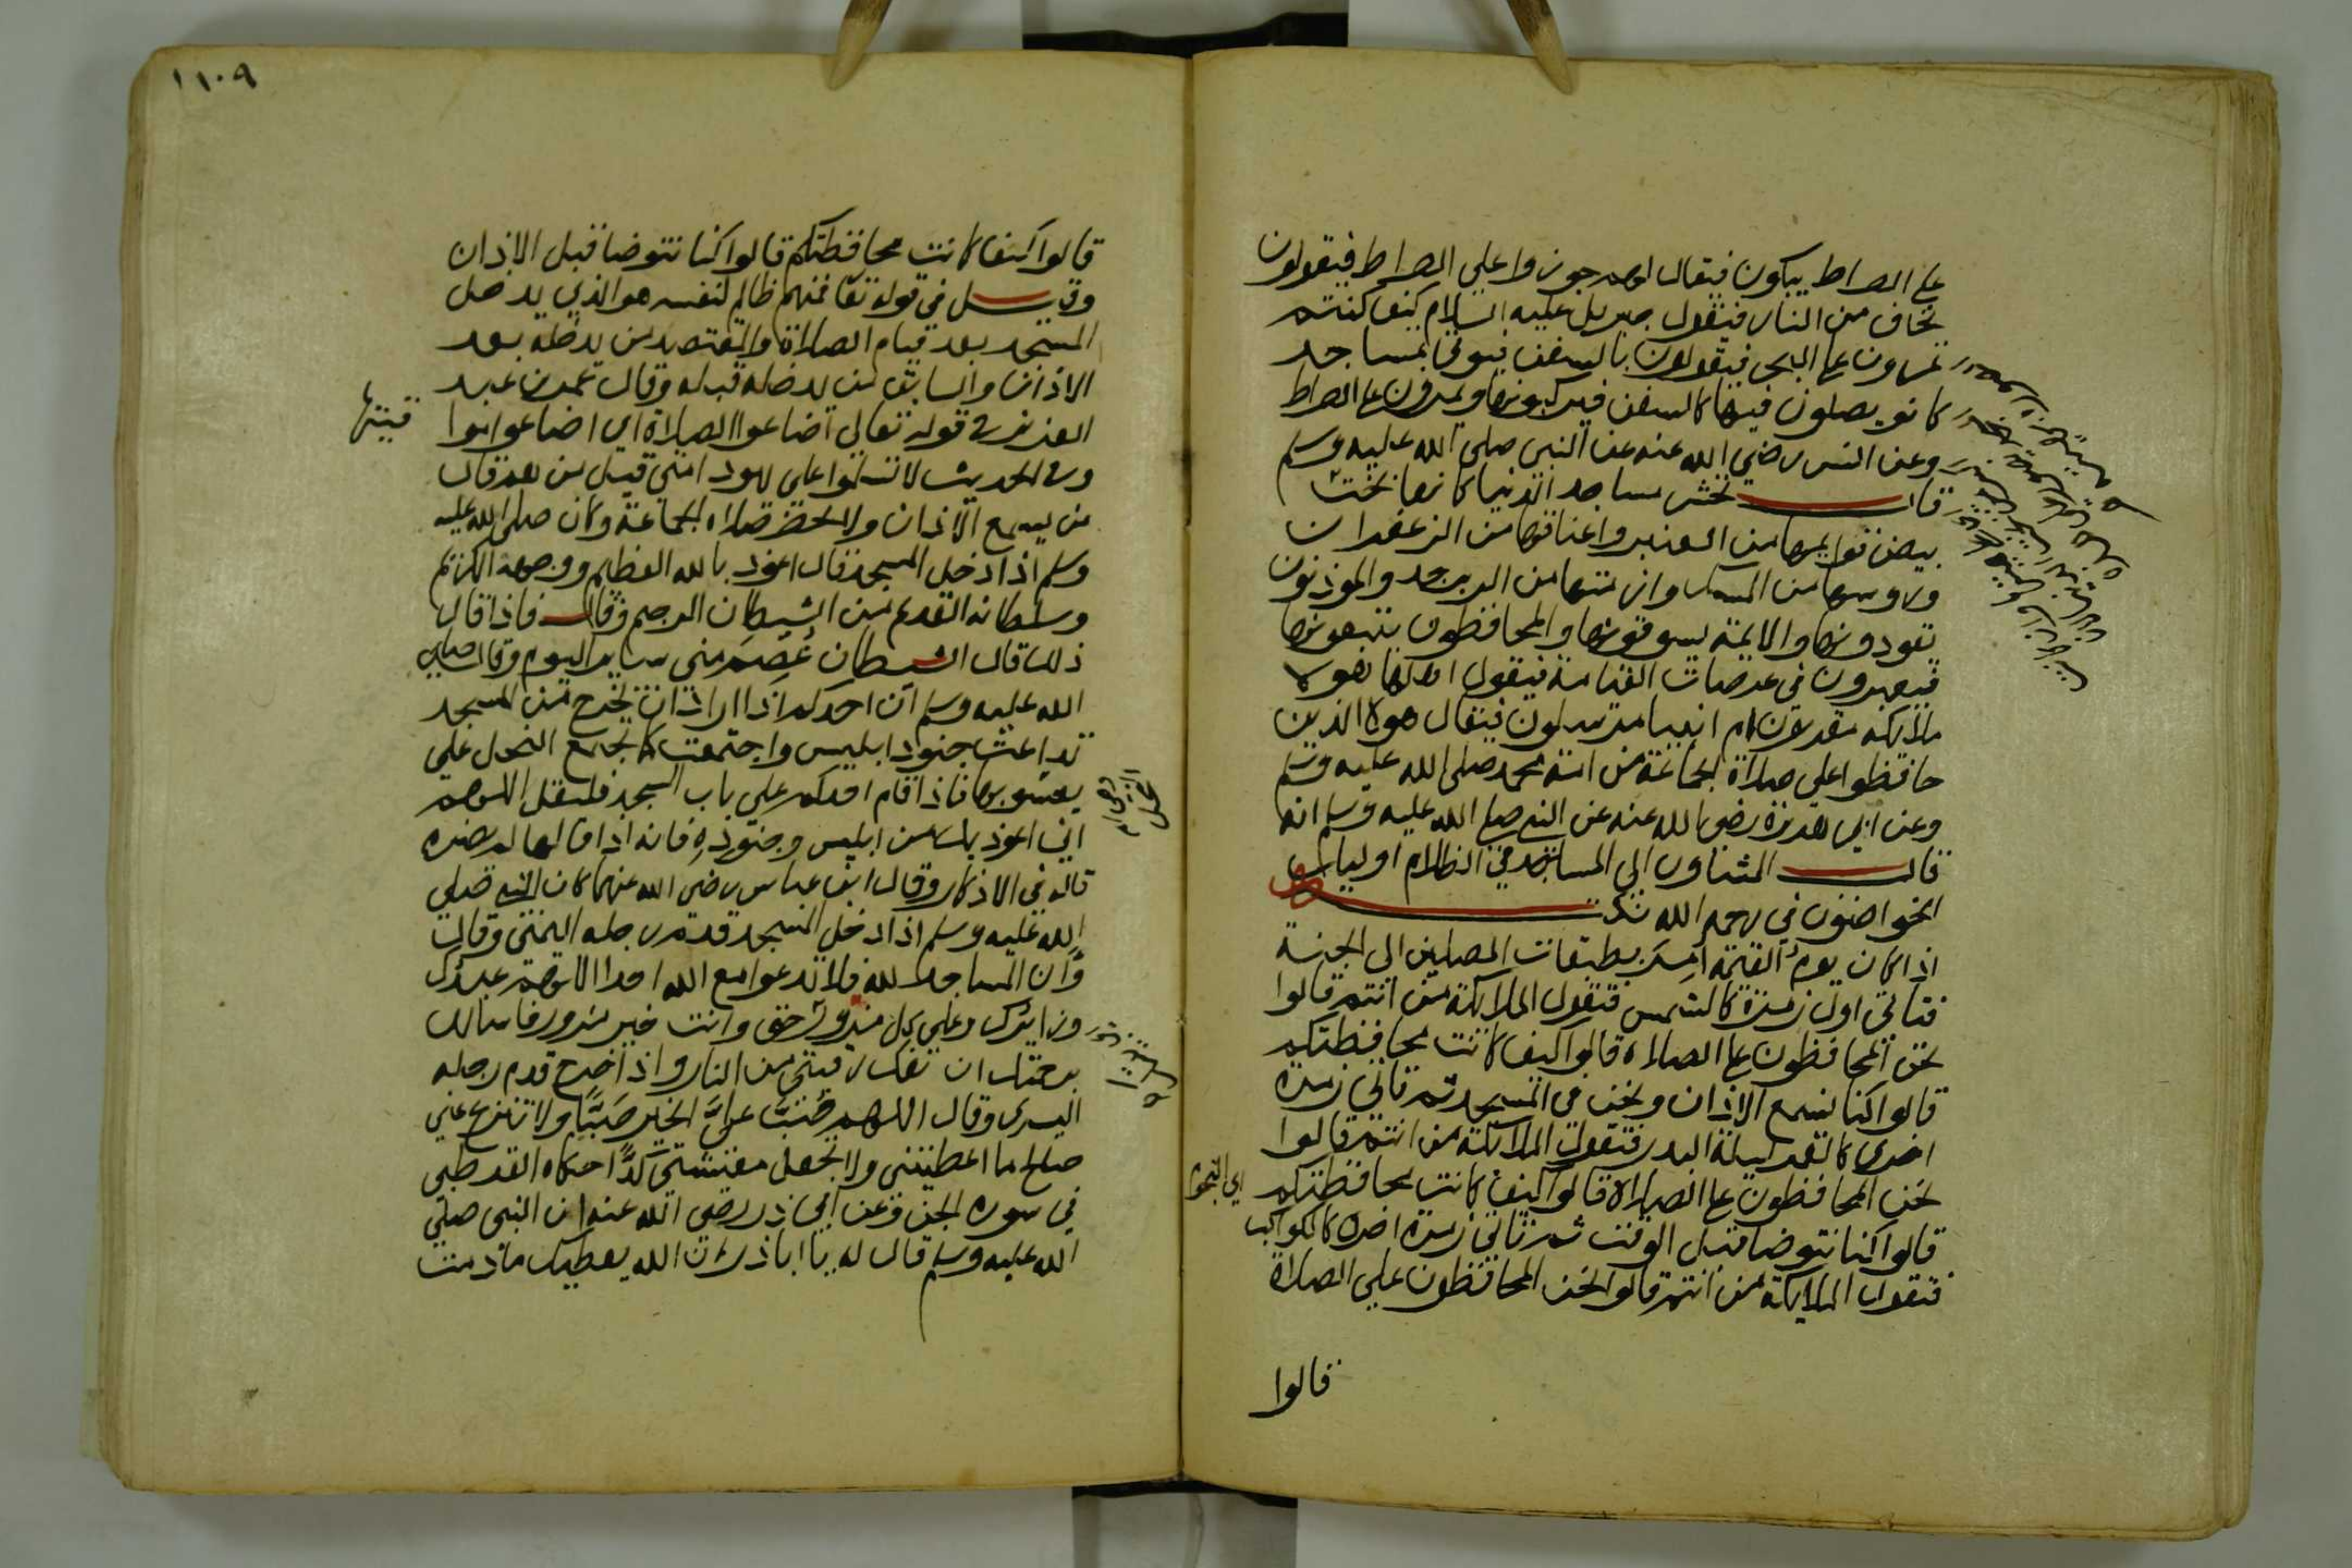 على الصراط يبكون فيقال لهم جوزوا على الصراط فيقولون
نخاف من النار فيقول جبريل عليه السلام كيف كنتم
تمرون على البحر فيقولون بالسفن فيوتى بمساجد
كانو يصلون فيها كالسفن فيركبونها ويمرون على الصراط
وعن انس رضي الله عنه عن النبي صلى الله عليه وسلم
قال تحشر مساجد الدنيا كانها بخت
بيض قوايمها من العنبر واعناقها من الزعفران
وروسها من المسك وازمتها من الزبرجد والموذنون
يقودونها والايمة يسوقونها والمحافظون يتبعونها
فيعبرون في عرصات القيامة فيقول اهلها هولا
ملايكه مقربون ام انبيا مرسلون فيقال هولا الذين
حافظوا على صلاة الجماعة من امة محمد صلى الله عليه وسلم
وعن ابي هريرة رضي الله عنه عن النبي صلى الله عليه وسلم انه
قال المشاون الى المساجد في الظلام اوليك
الخواضون في رحمة الله
اذا كان يوم القيمة امر بطبقات المصلين الى الجنة
فتاتي اول زمرة كالشمس فتقول الملايكة من انتم قالوا
نحن المحافظون على الصلاة قالوا كيف كانت محافظتكم
قالوا كنا نسمع الاذان ونحن في المسجد ثم تاتي زمرة
اخرى كالقمر ليلة البدر فتقول الملايكة من انتم قالوا
نحن المحافظون على الصلاة قالوا كيف كانت محافظتكم
قالوا كنا نتوضا قبل الوقت ثم تاتي زمرة اخرى كالكواكب
فتقول الملايكة من انتم قالوا نحن المحافظون على الصلاة
قالوا
١٠٩
قالوا كيف كانت محافظتكم قالوا كنا نتوضا قبل الاذان
وقيل في قوله تعا فمنهم ظالم لنفسه هو الذي يدخل
المسجد بعد قيام الصلاة والمقتصد من يدخله بعد
الاذان والسابق من يدخله قبله وقال عمر بن عبد
العزيز في قوله تعالى اضاعوا الصلاة اي اضاعوا
وفي الحديث لا تسلموا على يهود امتي قيل من هم قال
من يسمع الاذان ولا يحضر صلاة الجماعة وكان صلى الله عليه
وسلم اذا دخل المسجد قال اعوذ بالله العظيم ووجهه الكريم
وسلطانه القديم من الشيطان الرجيم وقال فاذا قال
ذلك قال الشيطان عُصِمَ مني ساير اليوم وقال صلى
الله عليه وسلم ان احدكم اذا اراد ان يخرج من المسجد
تداعت جنود ابليس واجتمعت كما يجتمع النحل على
يعسوبها فاذا قام احدكم على باب المسجد فليقل اللهم
اني اعوذ بك من ابليس وجنوده فانه اذا قالها لم يضره
قاله في الاذكار وقال ابن عباس رضي الله عنهما كان النبي صلى
الله عليه وسلم اذا دخل المسجد قدم رجله اليمنى وقال
وان المساجد لله فلا تدعوا مع الله احدا اللهم عبدك
وزايرك وعلى كل مزور حق وانت خير مزور فاسالك
برحمتك ان تفك رقبتي من النار واذا خرج قدم رجله
اليسرى وقال اللهم صُبَّ عليَّ الخير صَبًّا ولا تنزع عني
صالح ما اعطيتني ولا تجعل معيشتي كدًّا حكاه القرطبي
في سورة الجن وعن ابي ذر رضي الله عنه ان النبي صلى
الله عليه وسلم قال له يا اباذر ان الله يعطيك ما دمت